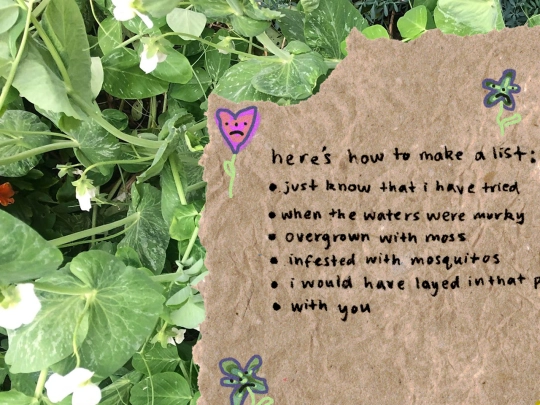 here's how to make a list:
• just know that i have tried
• when the waters were murky
• overgrown with moss
• infested with mosquitos
• i would have layed in that
• with you